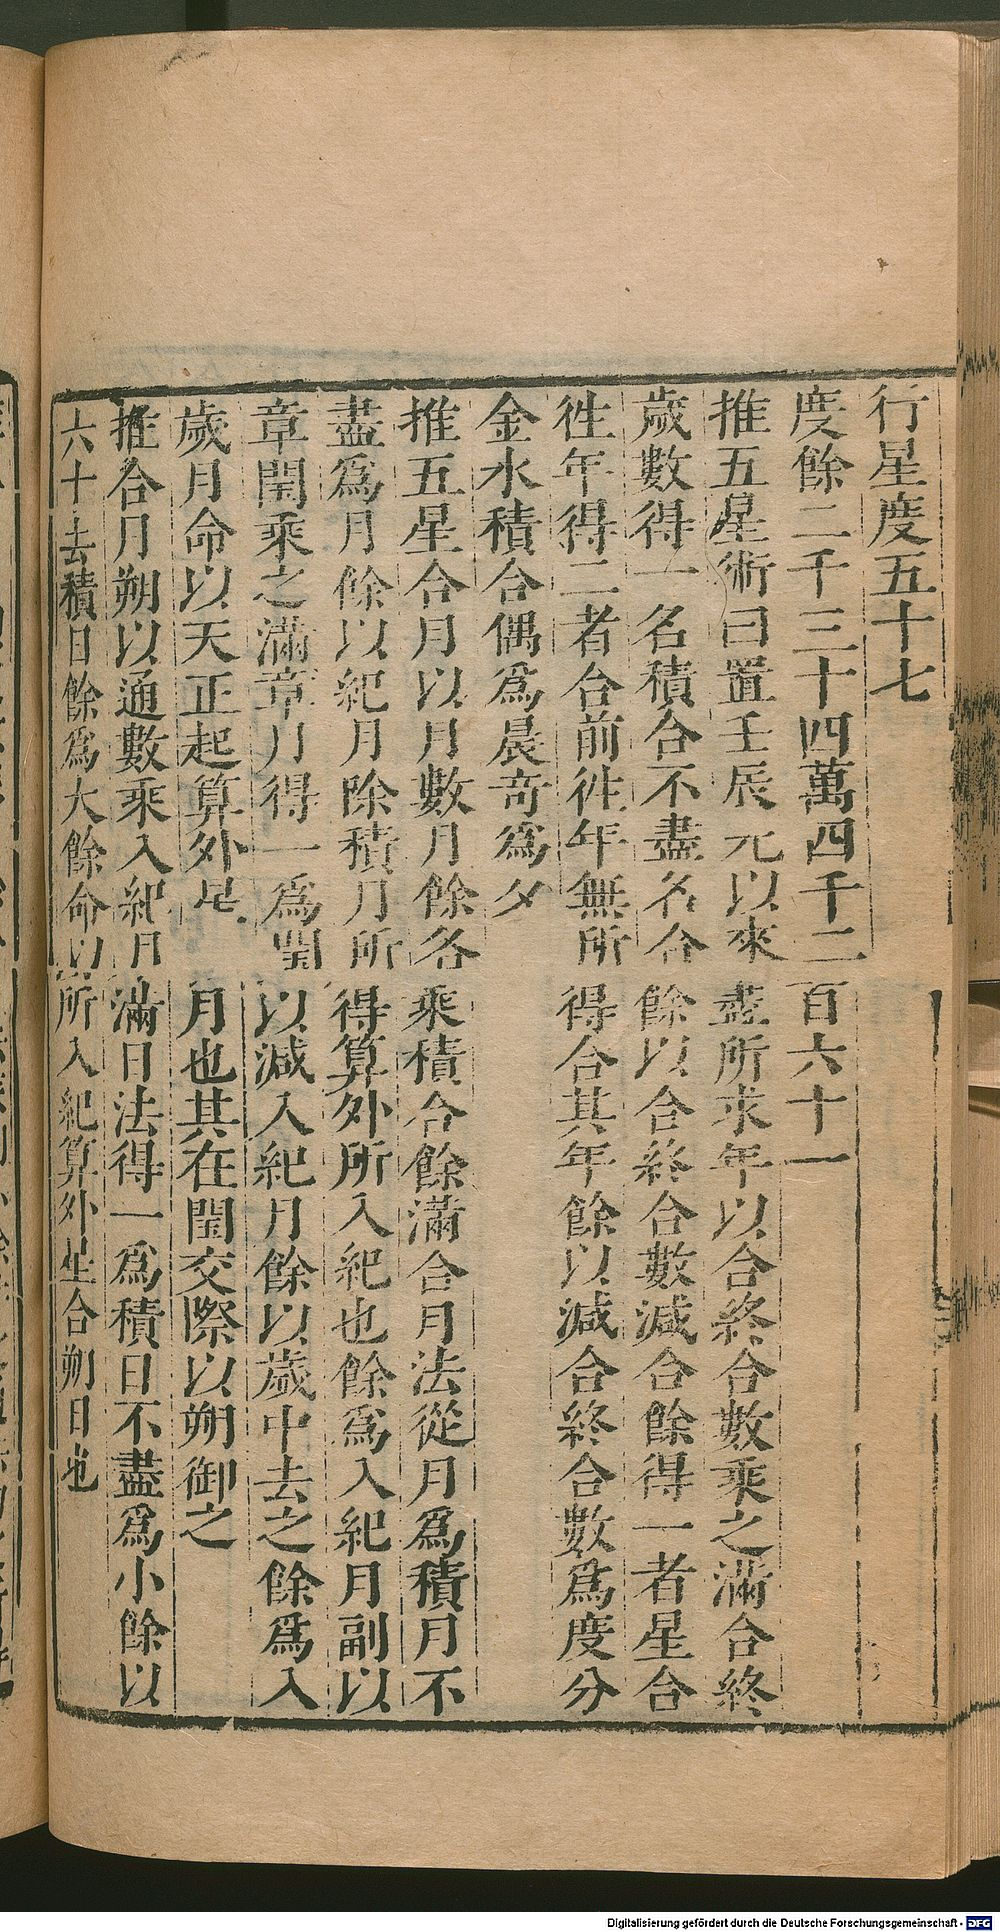 行星度五十七
度餘二千三十四萬四千二百六十一
推五星術曰置壬辰元以來盡所求年以合終合數乘之滿合終
歲數得一名積合不盡名合餘以合終合數減合餘得一者星合
徃年得二者合前徃年無所得合其年餘以減合終合數爲度分
金水積合偶爲晨奇爲夕
推五星合月以月數月餘各乘積合餘滿合月法從月爲積月不
盡爲月餘以紀月除積月所得算外所入紀也餘爲入紀月副以
章閏乘之滿章月得一爲閏以減入紀月餘以歲中去之餘爲入
歲月命以天正起算外是月也其在閏交際以朔御之
推合月朔以通數乘入紀月滿日法得一爲積日不盡爲小餘以
六十去積日餘爲大餘命以所入紀算外星合朔日也
Digitalisierung gefördert durch die Deutsche Forschungsgemeinschaft - DFG